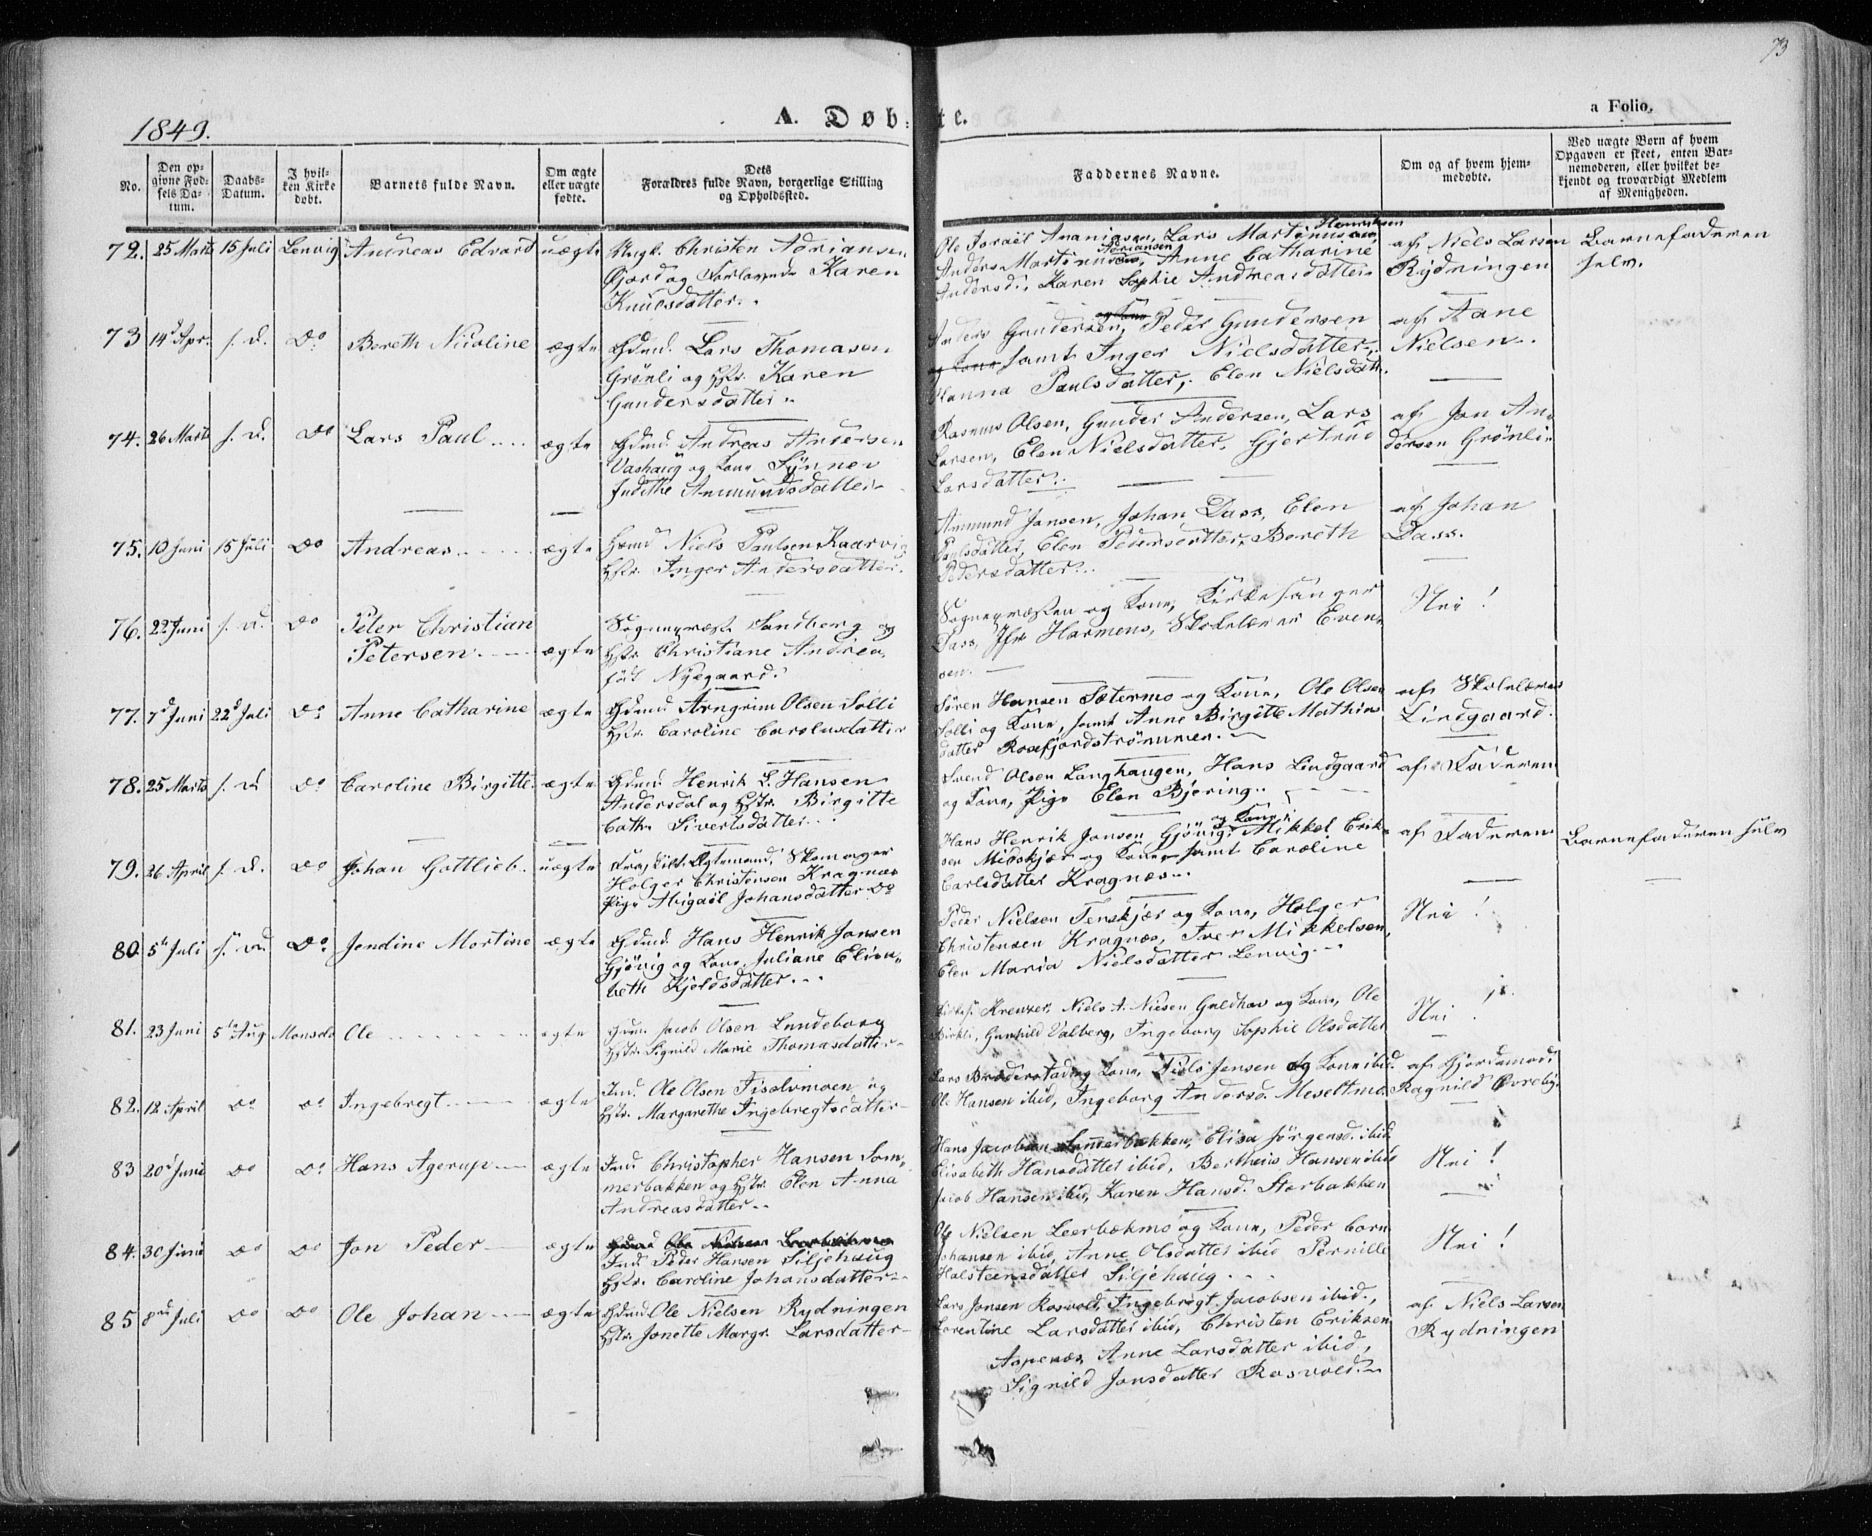 73
1849.
A. Døbte.
a Folio.
No.
Den opgivne Fødsels Datum.
Daabs-Datum.
I hvilken Kirke døbt.
Barnets fulde Navn.
Om ægte eller uægte fødte.
Dets Forældres fulde Navn, borgerlige Stilling og Opholdssted.
Faddernes Navne.
Om og af hvem hjemmedøbte.
Ved uægte Børn af hvem Opgaven er skeet, enten Barnemoderen, eller hvilket bekjendt og troværdigt Medlem af Menigheden.
72. 25 Marts 15 Juli Lenvig Andreas Edvard uægte Ungk. Christen Adriansen
Gjord og Karen
Knudsdatter.
Ole Israel Ananiasen, Lars Martinus Henriksen
Anders Martinus Adriansen, Anne Catharine
Andersd., Karen Sophie Andreasdatter
af Niels Larsen
Rydningen
Barnefaderen
selv.
73 14d Apr. s. d. Do Bereth Nicoline ægte Gdmd. Lars Thomasen
Grönli og Hstr. Karen
Gundersdatter.
Anders Gundersen, Peder Gundersen
samt Inger Nielsdatter,
Hanna Paulsdatter, Elen Nielsdatt.
af Aane
Nielsen.
74. 26 Marts s. d. Do Lars Paul ægte Gdmd. Andreas Andersen
Vashaug og Kone Synnev
Judithe Anmundsdatter
Rasmus Olsen, Gunder Andersen, Lars
Larsen, Elen Nielsdatter, Gjertrud
Larsdatter.
af Jon An-
dersen Grönli
75. 10 Juni 15 Juli Do Andreas ægte Hmd Niels Paulsen Kaarvig
Hstr. Inger Andersdatter.
Ammund Jansen, Johan Dass, Elen
Paulsdatter, Elen Pedersdatter, Bereth
Pedersdatter.
af Johan
Dass.
76. 22 Juni s. d. Do Peter Christian
Petersen ægte Sognepræst Sandberg og
Hstr. Christiane Andrea
født Nyegaard.
Sognepræsten og Kone, Kirkesanger
Dass, Jfr Harmens, Skolelærer Even-
sen.
Nei!
77. 7d Juni 22d Juli Do Anne Catharine ægte Gdmd Arngrim Olsen Solli
Hstr. Caroline Carolusdatter
Søren Hansen Sætermo og Kone, Ole Olsen
Solli og Kone, samt Anne Birgitte Mathis
datter Rossfjordströmmen.
af Skolelærer
Lindgaard.
78. 25 Marts s. d. Do Caroline Birgitte ægte Gdmd. Henrik L. Hansen
Andersdal og Hstr. Birgitte
Cath. Sivertsdatter
Svend Olsen Langhaugen, Hans Lindgaard
og Kone, Pige Elen Bjering.
af Faderen
79. 26 April s. d. Do Johan Gottlieb. uægte Fraskilt Ægtemand, Skomager
Holger Christensen Kragnæs
Pige Abigael Johansdatter Do
Hans Henrik Jansen Gjövig og Kone, Mikkel Erik-
sen Midskjær og Kone samt Caroline
Carlsdatter Kragnæs.
af Faderen
Barnefaderen selv
80. 5te Juli s. d. Do Jondine Martine ægte Gdmd. Hans Henrik Jansen
Gjövig og Kone, Juliane Elisa-
beth Kjeldsdatter
Peder Nielsen Tenskjær og Kone, Holger
Christensen Kragnæs, Iver Mikkelsen,
Elen Maria Nielsdatter Lenvig.
Nei!
81. 23 Juni 5te Aug Maasdr Ole ægte Gdm Jacob Olsen Lundeborg
Hstr. Signild Marie Thomasdatter
Kirkes. Kreutzer, Niels A. Nilsen Guldhav og Kone, Ole
Birkli, Gunhild Valberg, Ingeborg Sophie Olsdatter
Nei!
82. 12 April Do Do Ingebregt ægte Ind. Ole Olsen og
Hstr. Margarethe Ingebregtsdatter
Lars Brøderstad og Kone, Jensen og Kone ibid.
Ole Hansen ibid, Ingeborg Andersd. Meseltmo
af Gjordemod.
Ragnild Øvreby
83 20d Juni Do Do Hans Agerup ægte Ind. Christopher Hansen Som-
merbakken og Hstr. Elen Anna
Andreasdatter
Hans Jacobsen Sommerbakken, Elisa Jørgensd. ibid.
Elisabeth Hansdatter ibid, Bertheus Hansen ibid
Jacob Hansen ibid, Karen Hansd. Storbakken
Nei!
84. 30 Juni Do Do Jon Peder ægte Gdmd Ole Nielsen Leerbækmo
Ind. Peder Hansen Siljehaug
Hstr. Caroline Johansdatter
Ole Nielsen Leerbækmo og Kone, Peder Corn.
Johansen ibid, Anne Olsdatter ibid Pernille
Holsteensdatter Siljehaug
Nei!
85 8de Juli Do Do Ole Johan ægte Gdmd Ole Nielsen Rydningen
Hstr. Jonette Margr. Larsdatter
Lars Jonsen Rosvold, Ingebregt Jacobsen ibid.,
Lorentine Larsdatter ibid, Christen Eriksen
Aspenæs, Anne Larsdatter ibid,
Signild Jonsdatter Rosvold.
af Niels Larsen
Rydningen